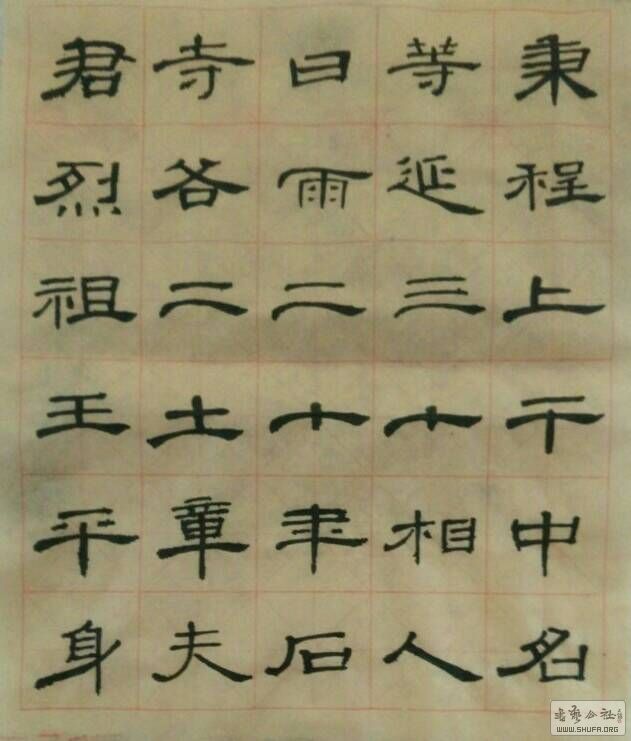 秉程上干中名
等延三十相人
曰雨二十聿石
寺各二土章夫
君烈祖王平身
书艺公社
WWW.SHUFA.ORG